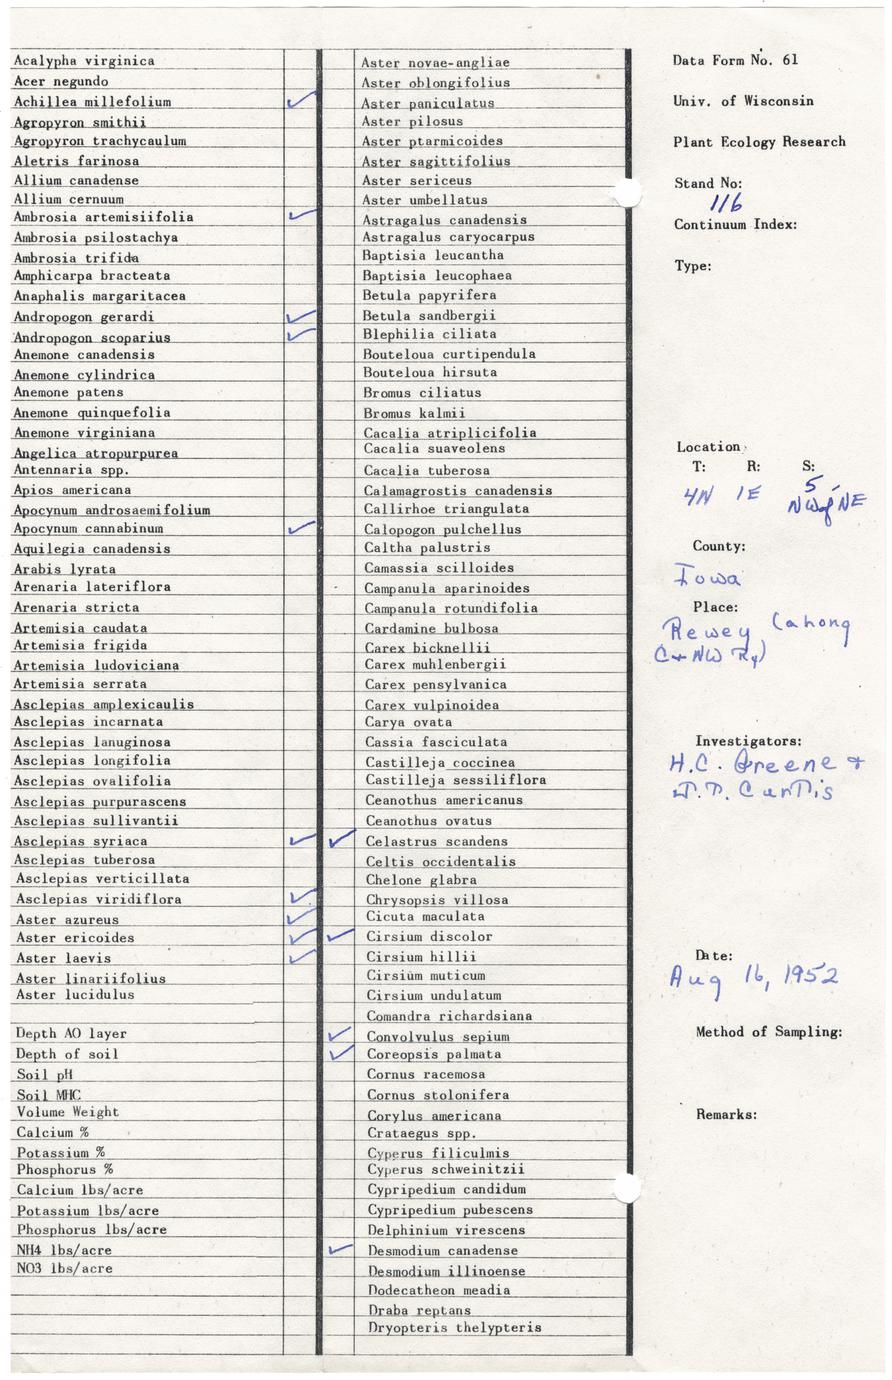 Acalypha virginica
Acer negundo
Achillea millefolium ✓
Agropyron smithii
Agropyron trachycaulum
Aletris farinosa
Allium canadense
Allium cernuum
Ambrosia artemisiifolia ✓
Ambrosia psilostachya
Ambrosia trifida
Amphicarpa bracteata
Anaphalis margaritacea
Andropogon gerardi ✓
Andropogon scoparius ✓
Anemone canadensis
Anemone cylindrica
Anemone patens
Anemone quinquefolia
Anemone virginiana
Angelica atropurpurea
Antennaria spp.
Apios americana
Apocynum androsaemifolium
Apocynum cannabinum ✓
Aquilegia canadensis
Arabis lyrata
Arenaria lateriflora
Arenaria stricta
Artemisia caudata
Artemisia frigida
Artemisia ludoviciana
Artemisia serrata
Asclepias amplexicaulis
Asclepias incarnata
Asclepias lanuginosa
Asclepias longifolia
Asclepias ovalifolia
Asclepias purpurascens
Asclepias sullivantii
Asclepias syriaca ✓
Asclepias tuberosa
Asclepias verticillata
Asclepias viridiflora ✓
Aster azureus ✓
Aster ericoides ✓
Aster laevis ✓
Aster linariifolius
Aster lucidulus
Depth AO layer
Depth of soil
Soil pH
Soil MHC
Volume Weight
Calcium %
Potassium %
Phosphorus %
Calcium lbs/acre
Potassium lbs/acre
Phosphorus lbs/acre
NH4 lbs/acre
NO3 lbs/acre
Aster novae-angliae
Aster oblongifolius
Aster paniculatus
Aster pilosus
Aster ptarmicoides
Aster sagittifolius
Aster sericeus
Aster umbellatus
Astragalus canadensis
Astragalus caryocarpus
Baptisia leucantha
Baptisia leucophaea
Betula papyrifera
Betula sandbergii
Blephilia ciliata
Bouteloua curtipendula
Bouteloua hirsuta
Bromus ciliatus
Bromus kalmii
Cacalia atriplicifolia
Cacalia suaveolens
Cacalia tuberosa
Calamagrostis canadensis
Callirhoe triangulata
Calopogon pulchellus
Caltha palustris
Camassia scilloides
Campanula aparinoides
Campanula rotundifolia
Cardamine bulbosa
Carex bicknellii
Carex muhlenbergii
Carex pensylvanica
Carex vulpinoidea
Carya ovata
Cassia fasciculata
Castilleja coccinea
Castilleja sessiliflora
Ceanothus americanus
Ceanothus ovatus
✓ Celastrus scandens
Celtis occidentalis
Chelone glabra
Chrysopsis villosa
Cicuta maculata
✓ Cirsium discolor
Cirsium hillii
Cirsium muticum
Cirsium undulatum
Comandra richardsiana
✓ Convolvulus sepium
✓ Coreopsis palmata
Cornus racemosa
Cornus stolonifera
Corylus americana
Crataegus spp.
Cyperus filiculmis
Cyperus schweinitzii
Cypripedium candidum
Cypripedium pubescens
Delphinium virescens
✓ Desmodium canadense
Desmodium illinoense
Dodecatheon meadia
Draba reptans
Dryopteris thelypteris
Data Form No. 61
Univ. of Wisconsin
Plant Ecology Research
Stand No:
116
Continuum Index:
Type:
Location
T: R: S:
4N 1E 5-
NW of NE
County:
Iowa
Place:
Rewey (along
C+NW Ry)
Investigators:
H.C. Greene +
J.T. Curtis
Date:
Aug 16, 1952
Method of Sampling:
Remarks: